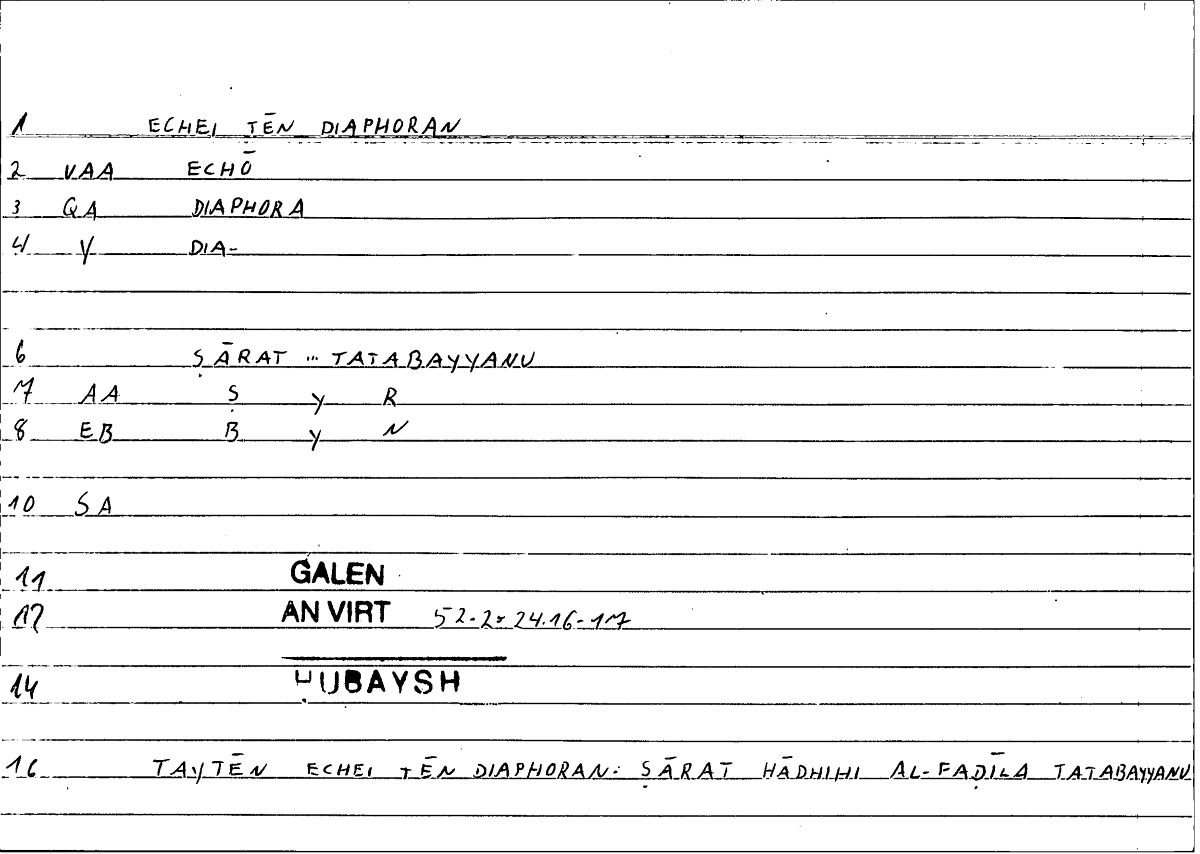 1 ECHEI TĒN DIAPHORAN
2 VAA ECHŌ
3 QA DIAPHORA
4 Y DIA-
6 ṢĀRAT ... TATABAYYANU
7 AA Ṣ Y R
8 EB B Y N
10 SA
11 GALEN
12 AN VIRT 52.2 = 24.16-17
14 ḤUBAYSH
16 TAYTĒN ECHEI TĒN DIAPHORAN: ṢĀRAT HĀDHIHI AL-FAḌĪLA TATABAYYANU